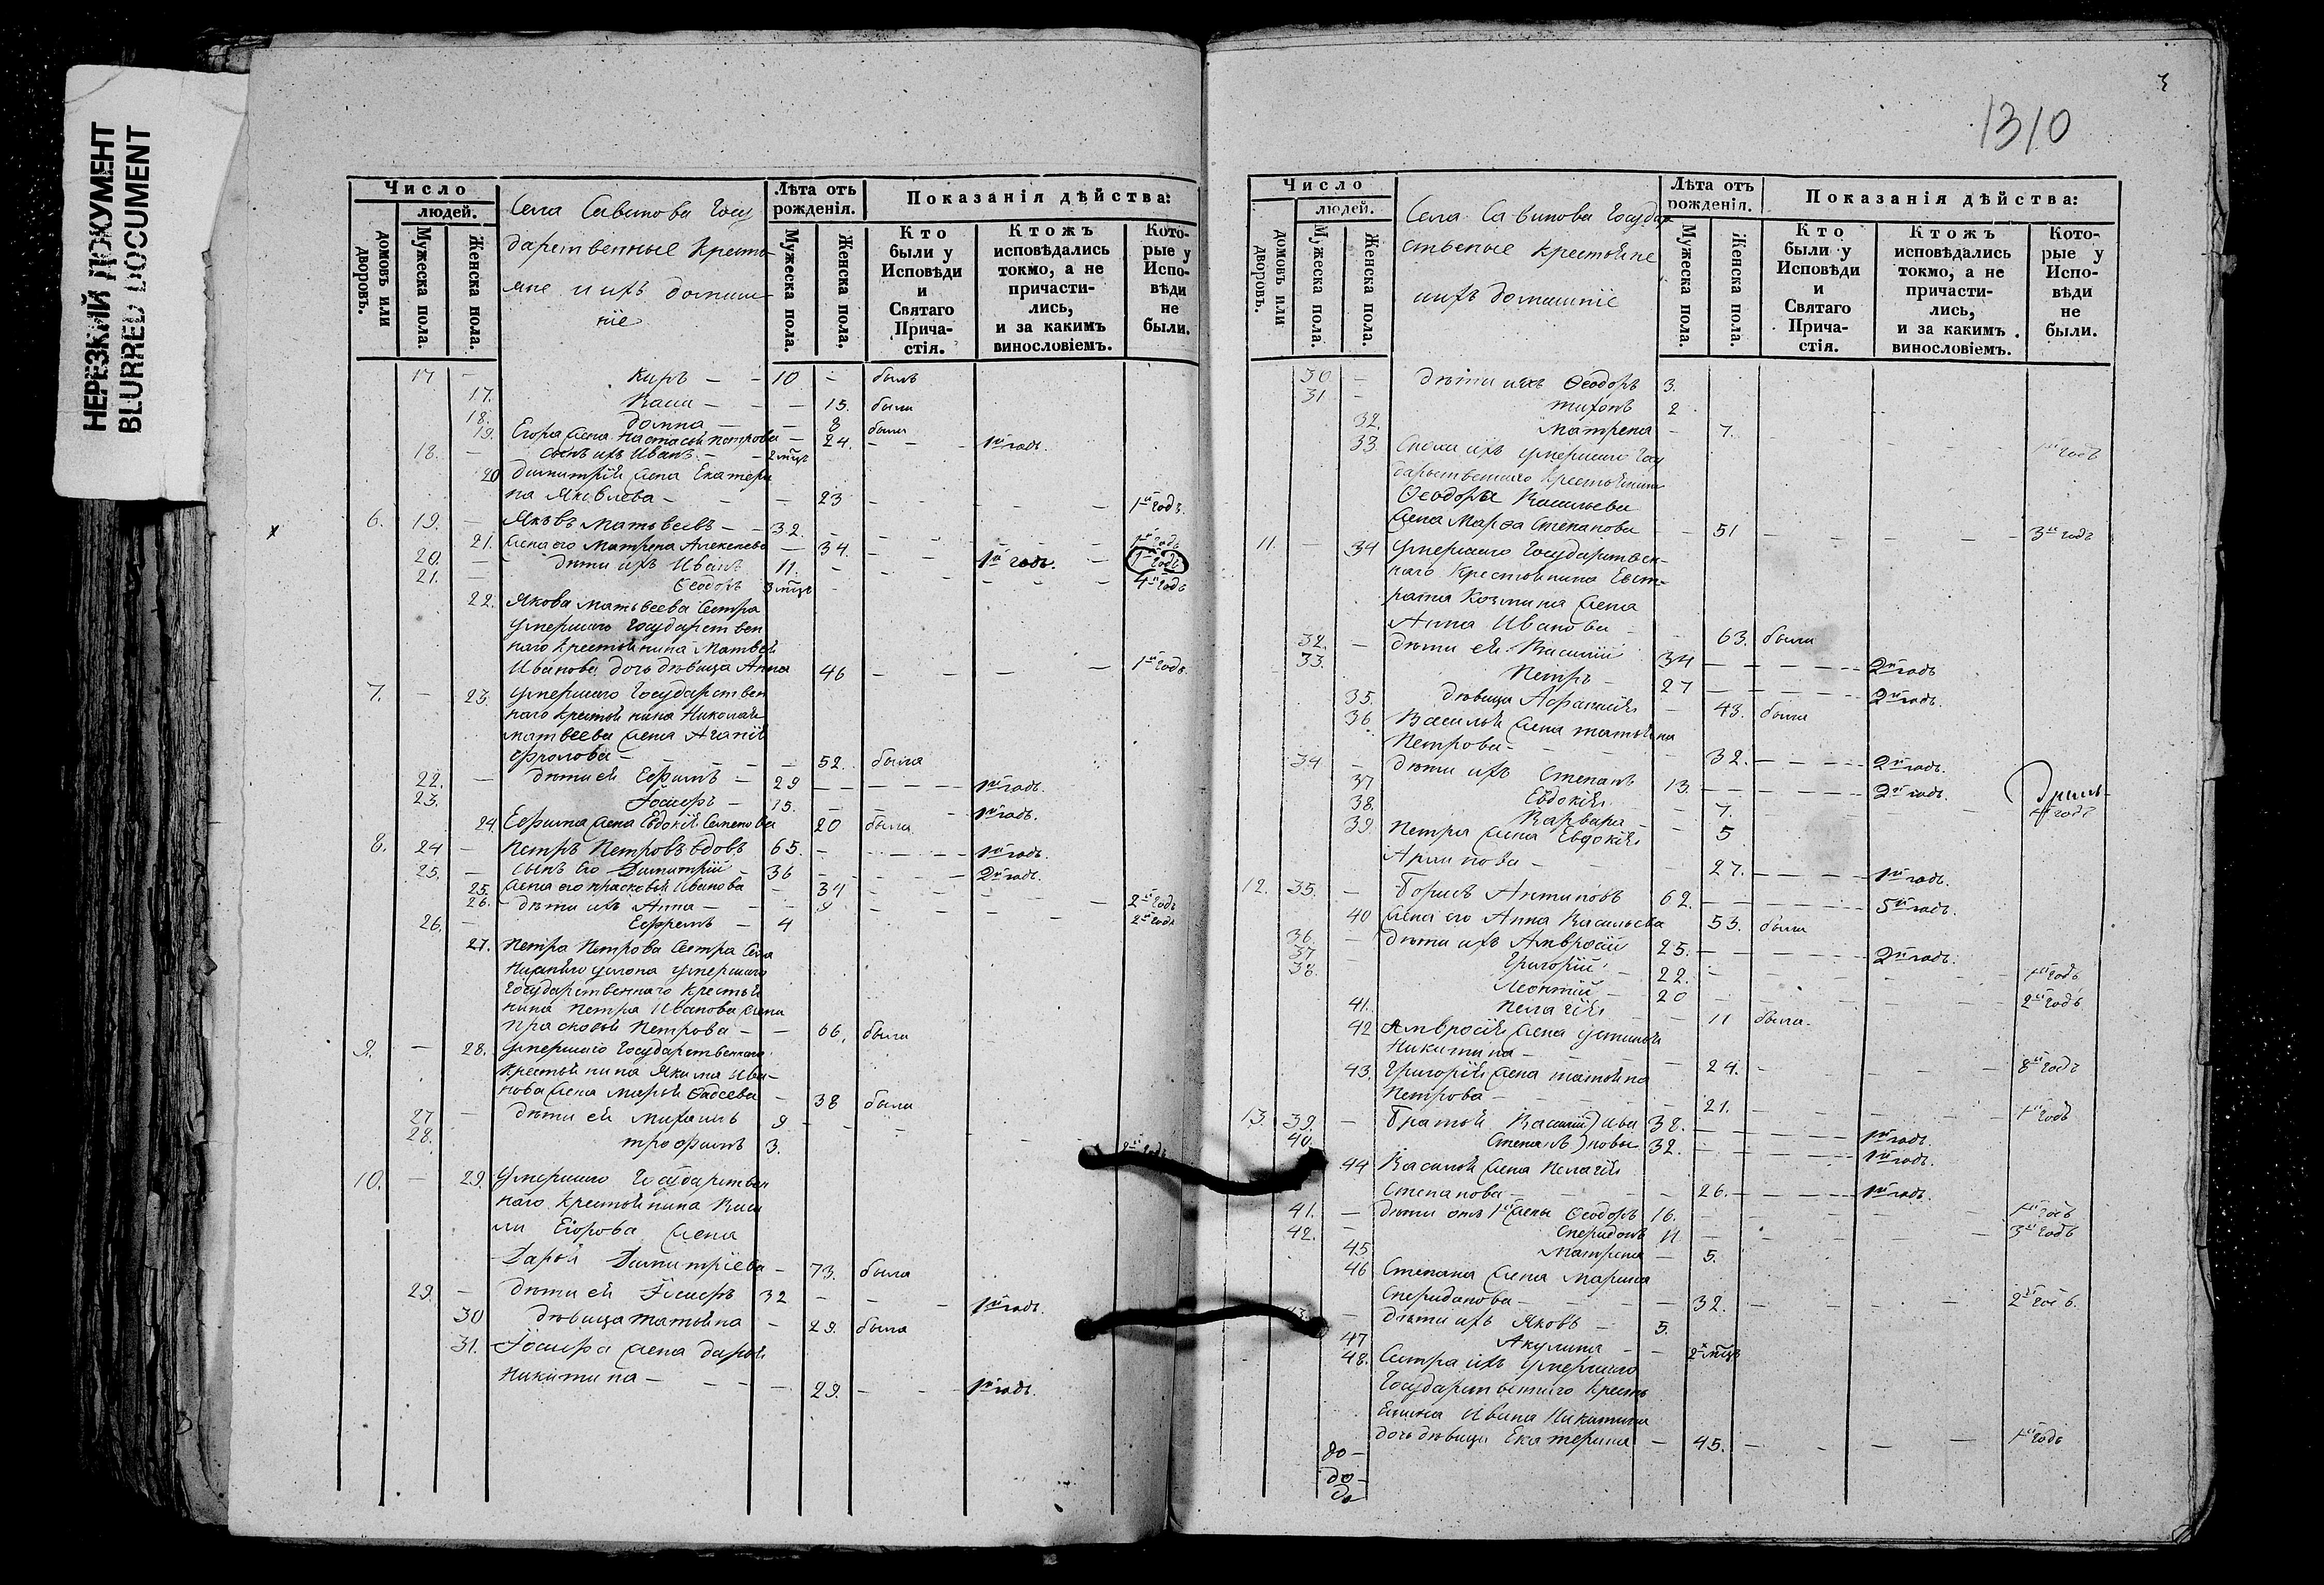 НЕРЕЗКИЙ ДОКУМЕНТ
BLURRED DOCUMENT
Число
людей.
домовъ или дворовъ.
Мужеска пола.
Женска пола.
Села Савинова Госу
дарственные крестья-
яне и ихъ домаш-
ніе
Лѣта отъ рожденія.
Мужеска пола.
Женска пола.
Показанія дѣйства:
Кто были у Исповѣди и Святаго Прича-стія.
Ктожъ исповѣдались токмо, а не причасти-лись, и за какимъ винословіемъ.
Кото-рые у Испо-вѣди не были.
17 — Киръ — — 10 — былъ
17. — — 15. была
18. Домна — — 8 была
19. Егора жена Настасья Петрова — 24. — — — 1й годъ.
18. — сынъ ихъ Иванъ — — 2 мѣц
20 Димитрія жена Екатери
на Яковлева — — 23 — — — — 1й годъ.
6. 19. — Яковъ Матвеевъ — — 32. — — — — 1й годъ
21. жена его Матрена Алексеева — 34. — — 1й годъ. — 1й годъ
20. — дѣти ихъ Иванъ 11. — — — 4й годъ
21. — Ѳеодоръ 3 мѣц —
22. Якова Матвеева сестра
умершаго Государствен
наго крестьянина Матвея
Иванова дочь дѣвица Анна 46 — — — — 1й годъ.
7. — 23. Умершаго Государствен
наго крестьянина Николая
Матвеева жена Агапія
Фролова — — — 52. была
22. — дѣти ея Ефимъ — 29 — — — — 1й годъ.
23. Іосифъ — 15. — — — 1й годъ.
24. Ефима жена Евдокія Семенова 20 была
8. 24 — Петръ Петровъ вдовъ 65. — — — — 1й годъ.
25. — сынъ его Димитрій — 36 — — — — 2й годъ.
25. жена его Прасковья Иванова — 34 — — — — 2й годъ
26. — дѣти ихъ Анна — — 9 — — — — 2й годъ
26. — Ефремъ — 4
27. Петра Петрова сестра села
Нижняго Услона умершаго
Государственнаго крестья
нина Петра Иванова жена
Прасковья Петрова — — 66. была
9. — 28. Умершаго Государственнаго
крестьянина Якима Ива-
нова жена Марья Фадеева — 38 была
27 — дѣти ея Михаилъ 9 — — — —
28. Трофимъ 3.
10. — 29. Умершаго Государствен
наго крестьянина Васи
лія Егорова жена
Дарья Димитріева — 73. была
29. — дѣти ея Іосифъ 32 — — — 1й годъ.
30 дѣвица Татьяна — 29. была
31. Іосифа жена Дарья
Никитина — — — — 29. — — — 1й годъ.
3
1310
Число
людей.
домовъ или дворовъ.
Мужеска пола.
Женска пола.
Села Савинова Государ
ственые крестьяне
и ихъ домашніе
Лѣта отъ рожденія.
Мужеска пола.
Женска пола.
Показанія дѣйства:
Кто были у Исповѣди и Святаго Прича-стія.
Ктожъ исповѣдались токмо, а не причасти-лись, и за какимъ винословіемъ.
Кото-рые у Испо-вѣди не были.
30 — Дѣти ихъ Ѳеодоръ 3.
31 — Тихонъ 2
32. Матрена — 7. — — — — 1й годъ
33. умершаго Госу
дарственнаго крестьянина
Ѳеодора Васильева
жена Марѳа Степанова — 51 — — — — 3й годъ
11. — 34 Умершаго Государствен-
наго крестьянина Евст-
рата Козмина жена
Анна Иванова — — 63. была
32. — дѣти ея Василій 34 — — — — 2й годъ
33. Петръ — 27 — — — — 2й годъ.
35. дѣвица Афанасія — 43. была
36. Василья жена Татьяна
Петрова — — — — 32. — — — 2й годъ.
34 — дѣти ихъ Степанъ 13. — — — — 2й годъ.
37 Евдокія — 7. — — 1й годъ
38. Варвара — — 5
39. Петра жена Евдокія
— — — 27. — — — 1й годъ.
12. 35. — Борисъ Антиповъ 62. — — — — 5й годъ.
40 жена его Анна Васильева 53. была
36. — дѣти ихъ Амвросій 25. — — — — 2й годъ.
37 Григорій 22. — — — — 1й годъ
38. Леонтій — 20 — — — — 2й годъ
41. Пелагія — — 11 была.
42 Амвросія жена Устинья
Никитина — — — — 24. — — — 8й годъ
43. Григорія жена Татьяна
Петрова — — — — 21. — — — 1й годъ
13. 39. — Братья Василій) Ива 38. — — — — 1й годъ.
40. Степанъ) новы 32. — — — — 1й годъ.
44 Василья жена Пелагія
Степанова — — — — 26. — — — 1й годъ.
41. — дѣти отъ 1й жены Ѳеодоръ 16. — — — — 1й годъ
42. — Спиридонъ 11 — — — — 3й годъ
45 Матрена — 5.
46 Степана жена Марина
Спиридонова — — — — 32. — — — — 2й годъ.
43. — дѣти ихъ Яковъ — 5.
47 Акулина — — 2 мѣц
48. Сестра ихъ умершаго
Государственнаго кресть
янина Ивана Никитина
дочь дѣвица Екатерина — 45. — — — — 1й годъ